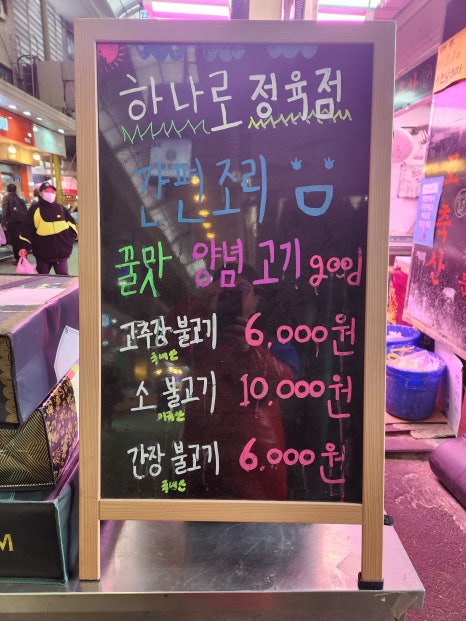 하나로 정육점
간편조리
꿀맛 양념 고기 good
고추장 불고기 6,000원
국내산
소 불고기 10,000원
미국산
간장 불고기 6,000원
국내산
축산